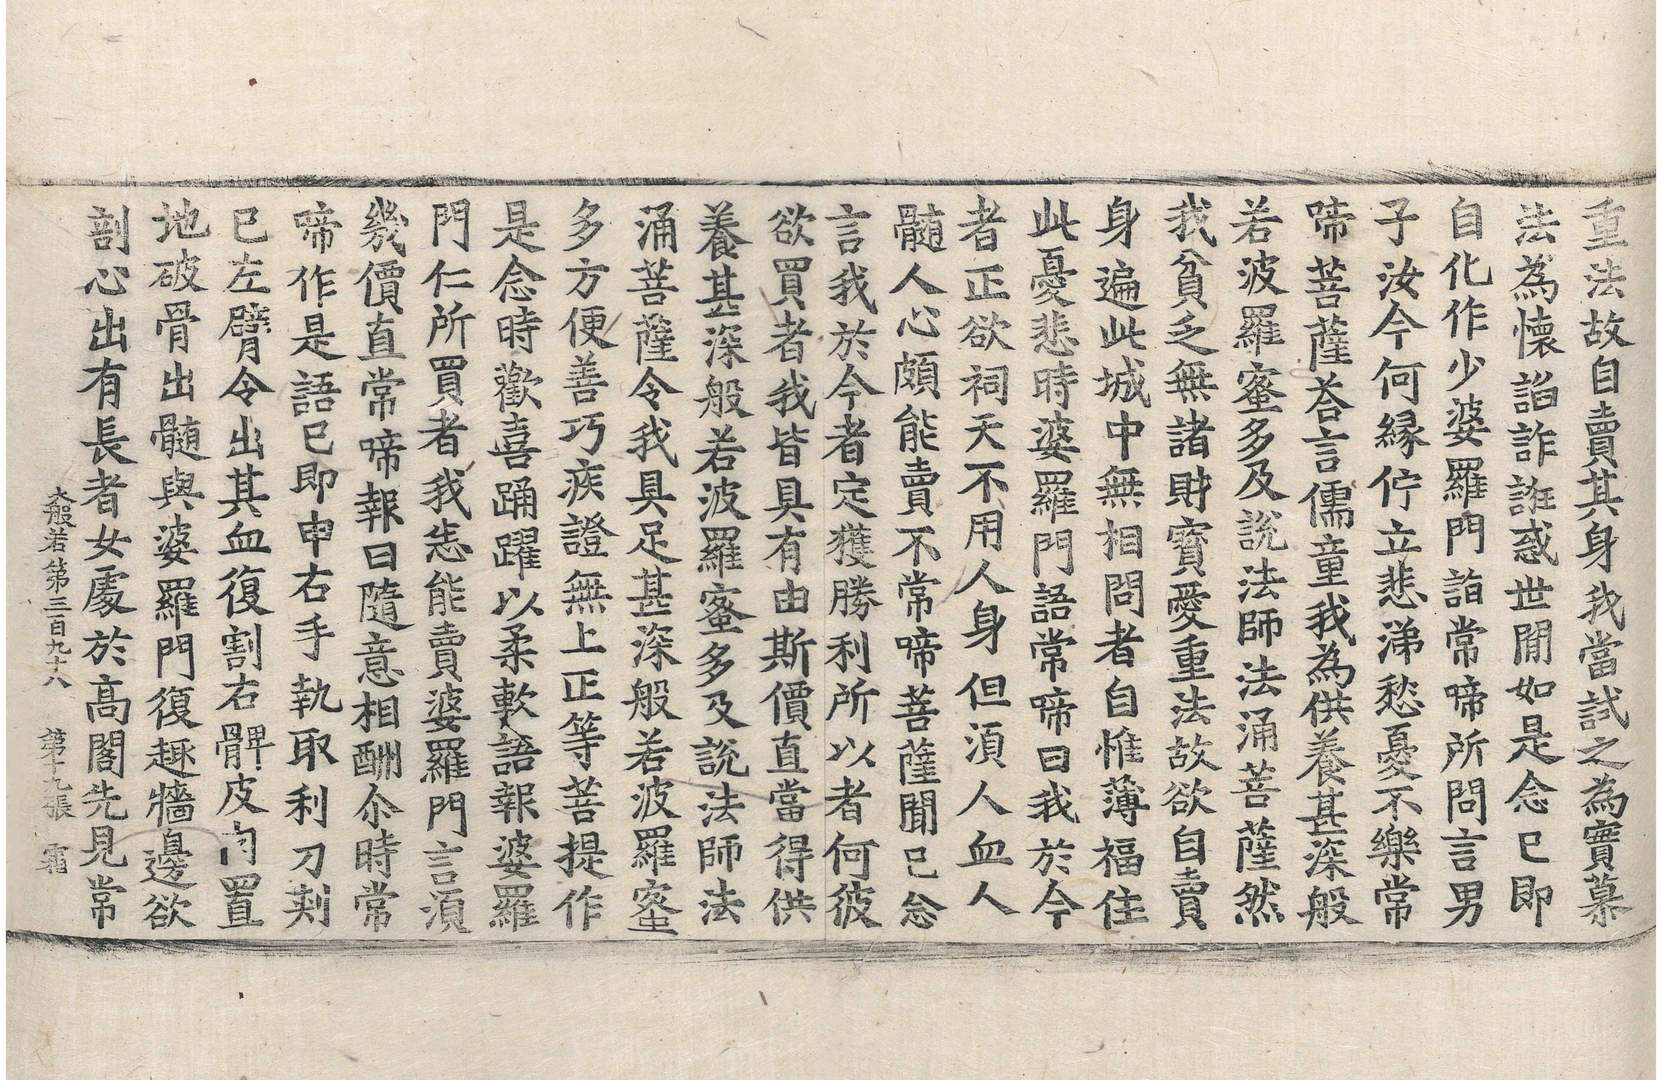 重法故自賣其身我當試之為實慕
法為懷諂詐誑惑世間如是念已即
自化作少婆羅門詣常啼所問言男
子汝今何緣佇立悲涕愁憂不樂常
啼菩薩荅言儒童我為供養甚深般
若波羅蜜多及說法師法涌菩薩然
我貧乏無諸財寶愛重法故欲自賣
身遍此城中無相問者自惟薄福住
此憂悲時婆羅門語常啼曰我於今
者正欲祠天不用人身但湏人血人
髓人心頗能賣不常啼菩薩聞已念
言我於今者定獲勝利所以者何彼
欲買者我皆具有由斯價直當得供
養甚深般若波羅蜜多及說法師法
涌菩薩令我具足甚深般若波羅蜜
多方便善巧疾證無上正等菩提作
是念時歡喜踊躍以柔軟語報婆羅
門仁所買者我悉能賣婆羅門言湏
幾價直常啼報曰隨意相酬尒時常
啼作是語已即申右手執取利刀刾
已左臂令出其血復割右髀皮肉置
地破骨出髓與婆羅門復趣牆邊欲
剖心出有長者女處於高閣先見常
大般若第三百九十八 第十九張 霜